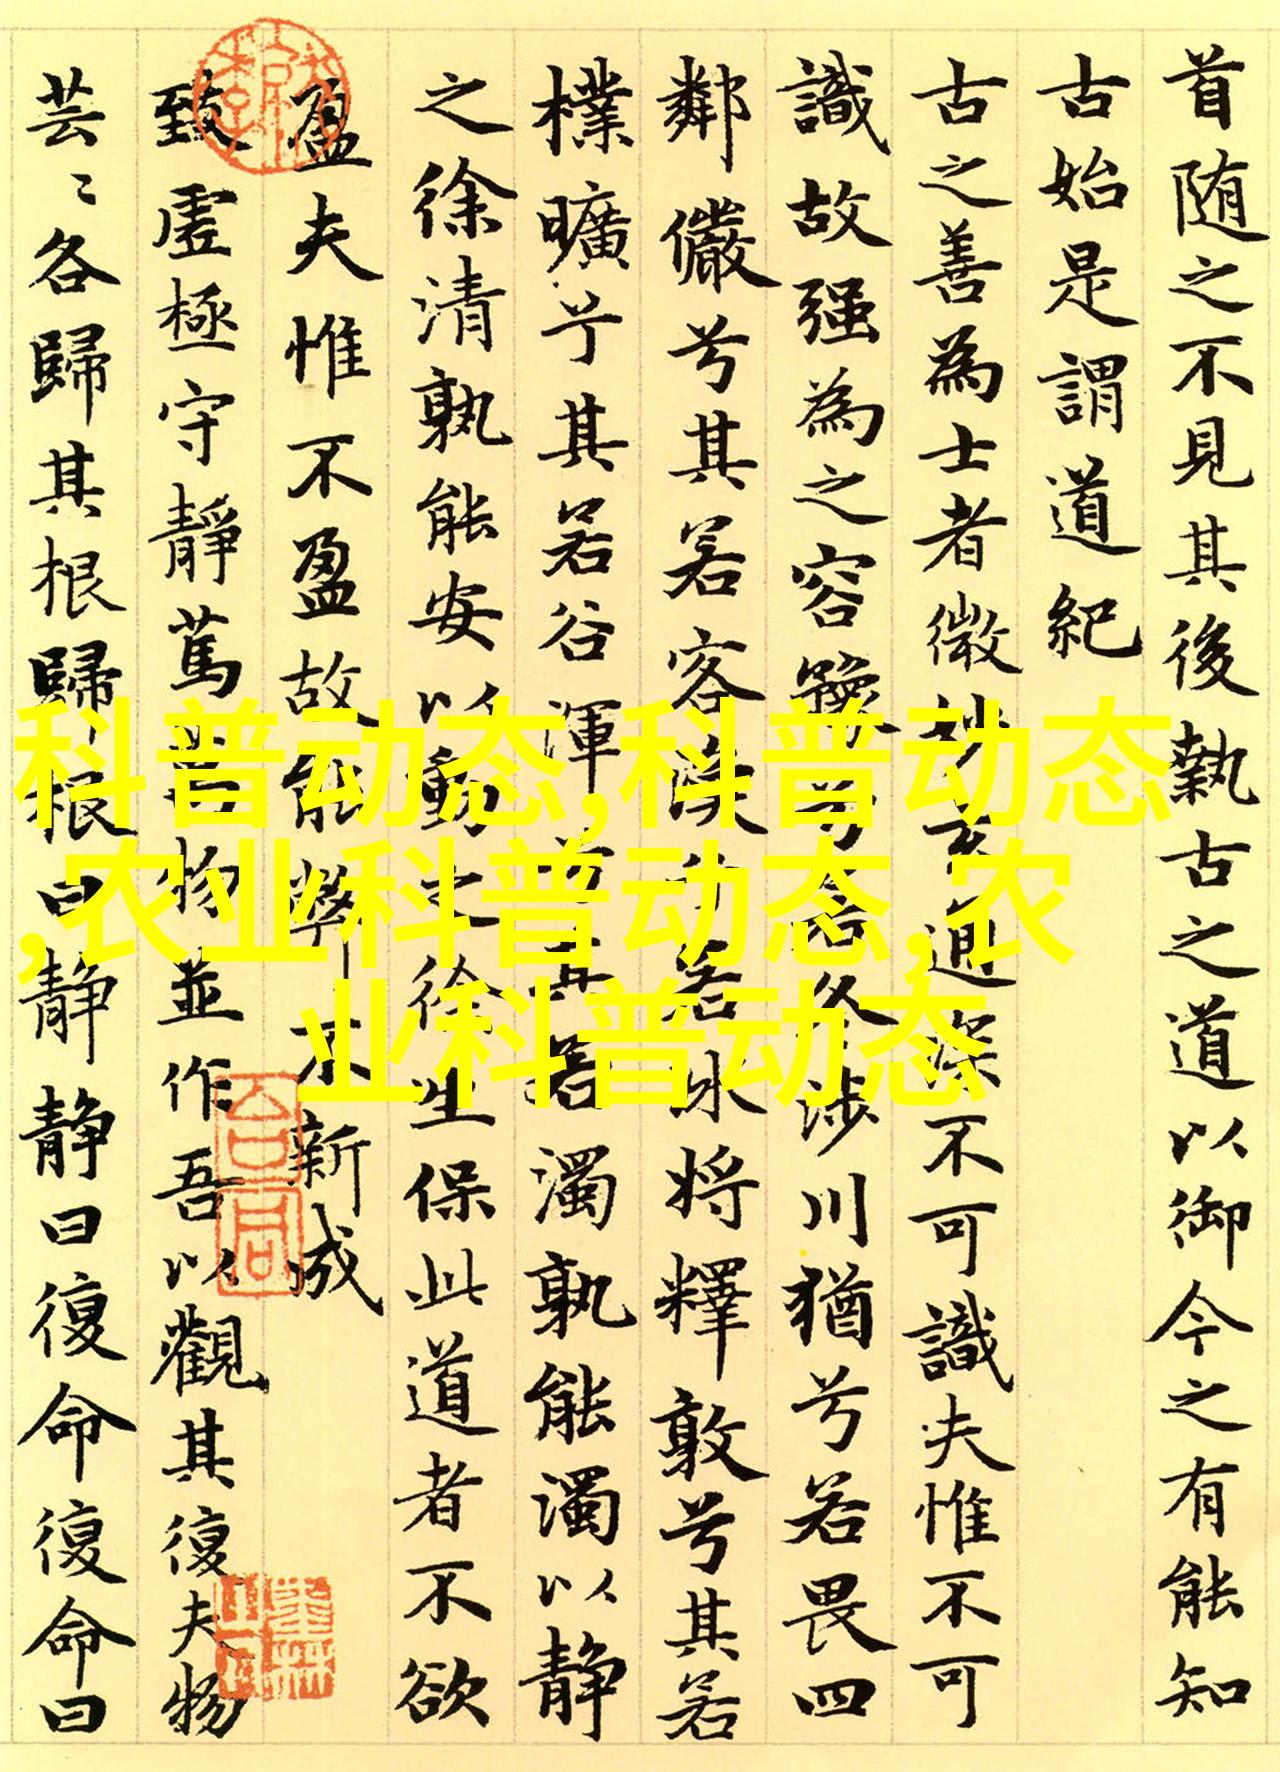 首随之不見其後執古之道以御今之有能知
古始是謂道紀
古之善為士者微妙玄通深不可識夫惟不可
識故强為之容豫兮若冬涉川猶兮若畏四
鄰儼兮其若客渙兮若冰將釋敦兮其若
樸曠兮其若谷渾兮其若濁孰能濁以静
之徐清孰能安以動之徐生保此道者不欲
盈夫惟不盈故能弊不新成
致虛極守靜篤萬物並作吾以觀其復夫物
芸〻各歸其根歸根曰静静曰復命復命曰
科普动态,科普动态
,农业科普动态,农
业科普动态